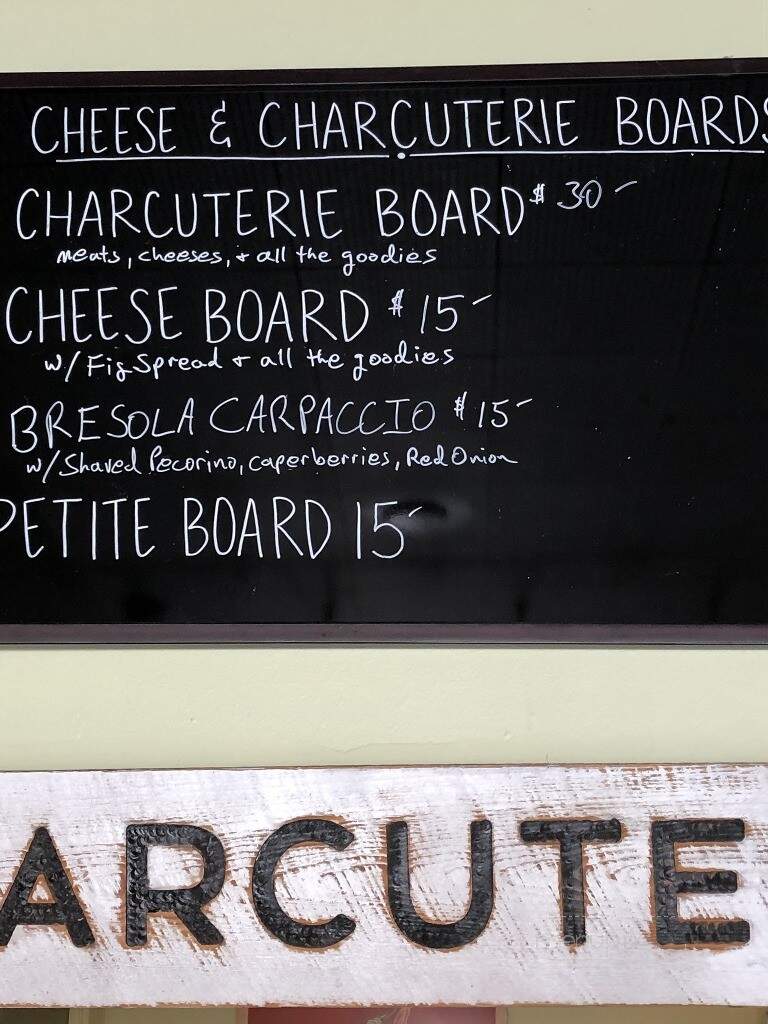 CHEESE & CHARCUTERIE BOARDS
CHARCUTERIE BOARD $30-
meats, cheeses, + all the goodies
CHEESE BOARD $15-
w/ Fig Spread + all the goodies
BRESOLA CARPACCIO $15-
w/ Shaved Pecorino, caperberries, Red Onion
PETITE BOARD 15-
ARCUTE